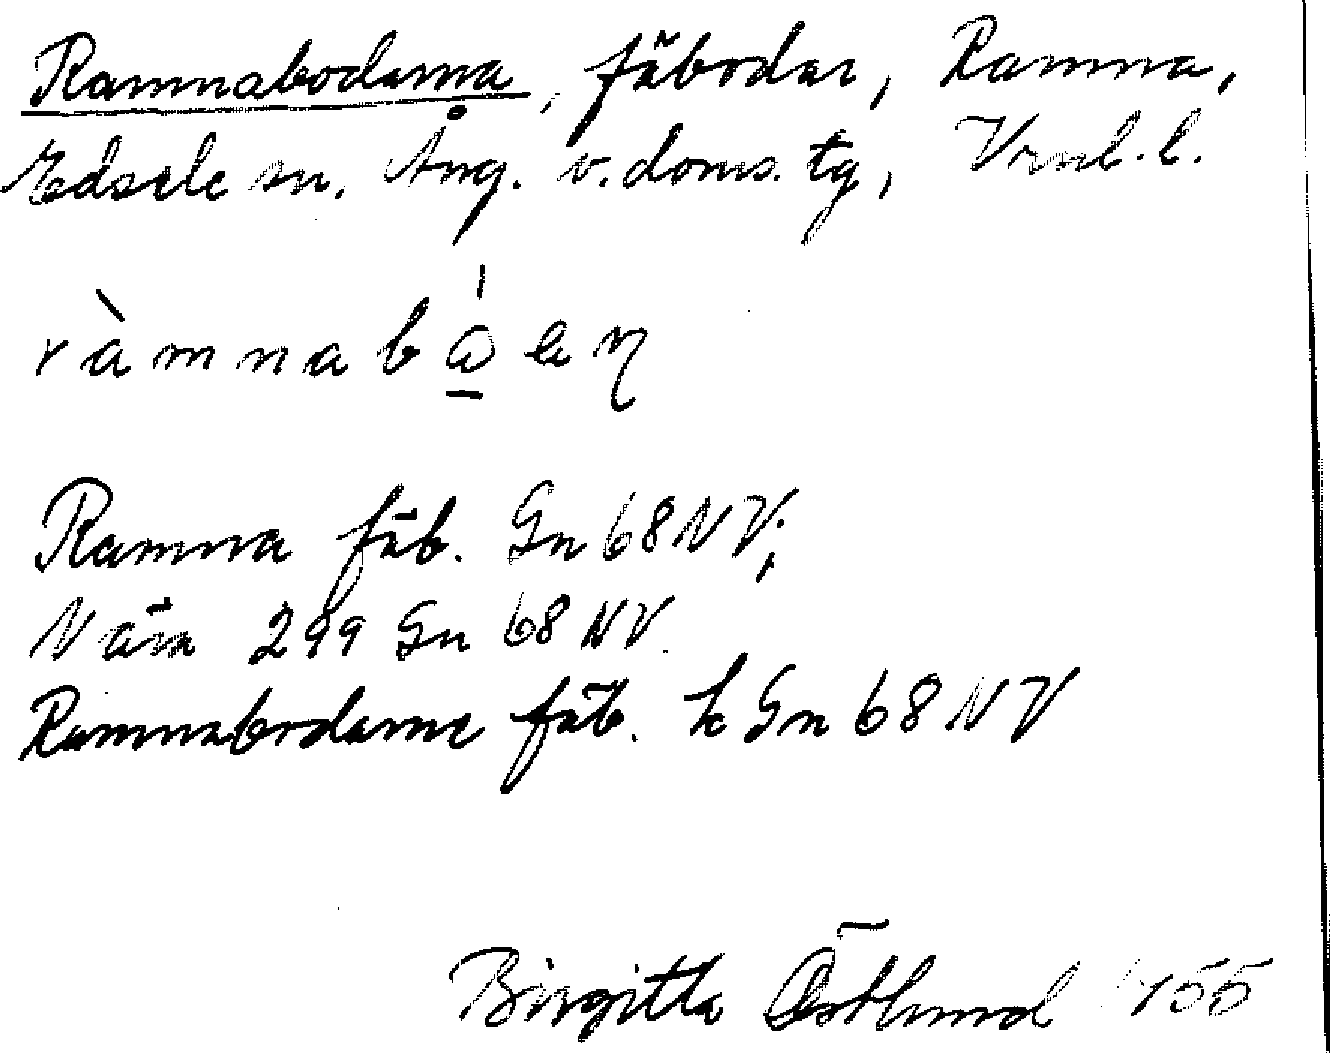 Ramnabodarna, fäbodar, Ramna,
Edsele sn. Ång. v. doms. tg, Vrnl. l.
ràmnab
Ramna fäb. Gn 68 NV;
Nära 299 Gn 68 NV.
Ramnabodarne fäb. k Gn 68 NV
Birgitta Östlund 1955